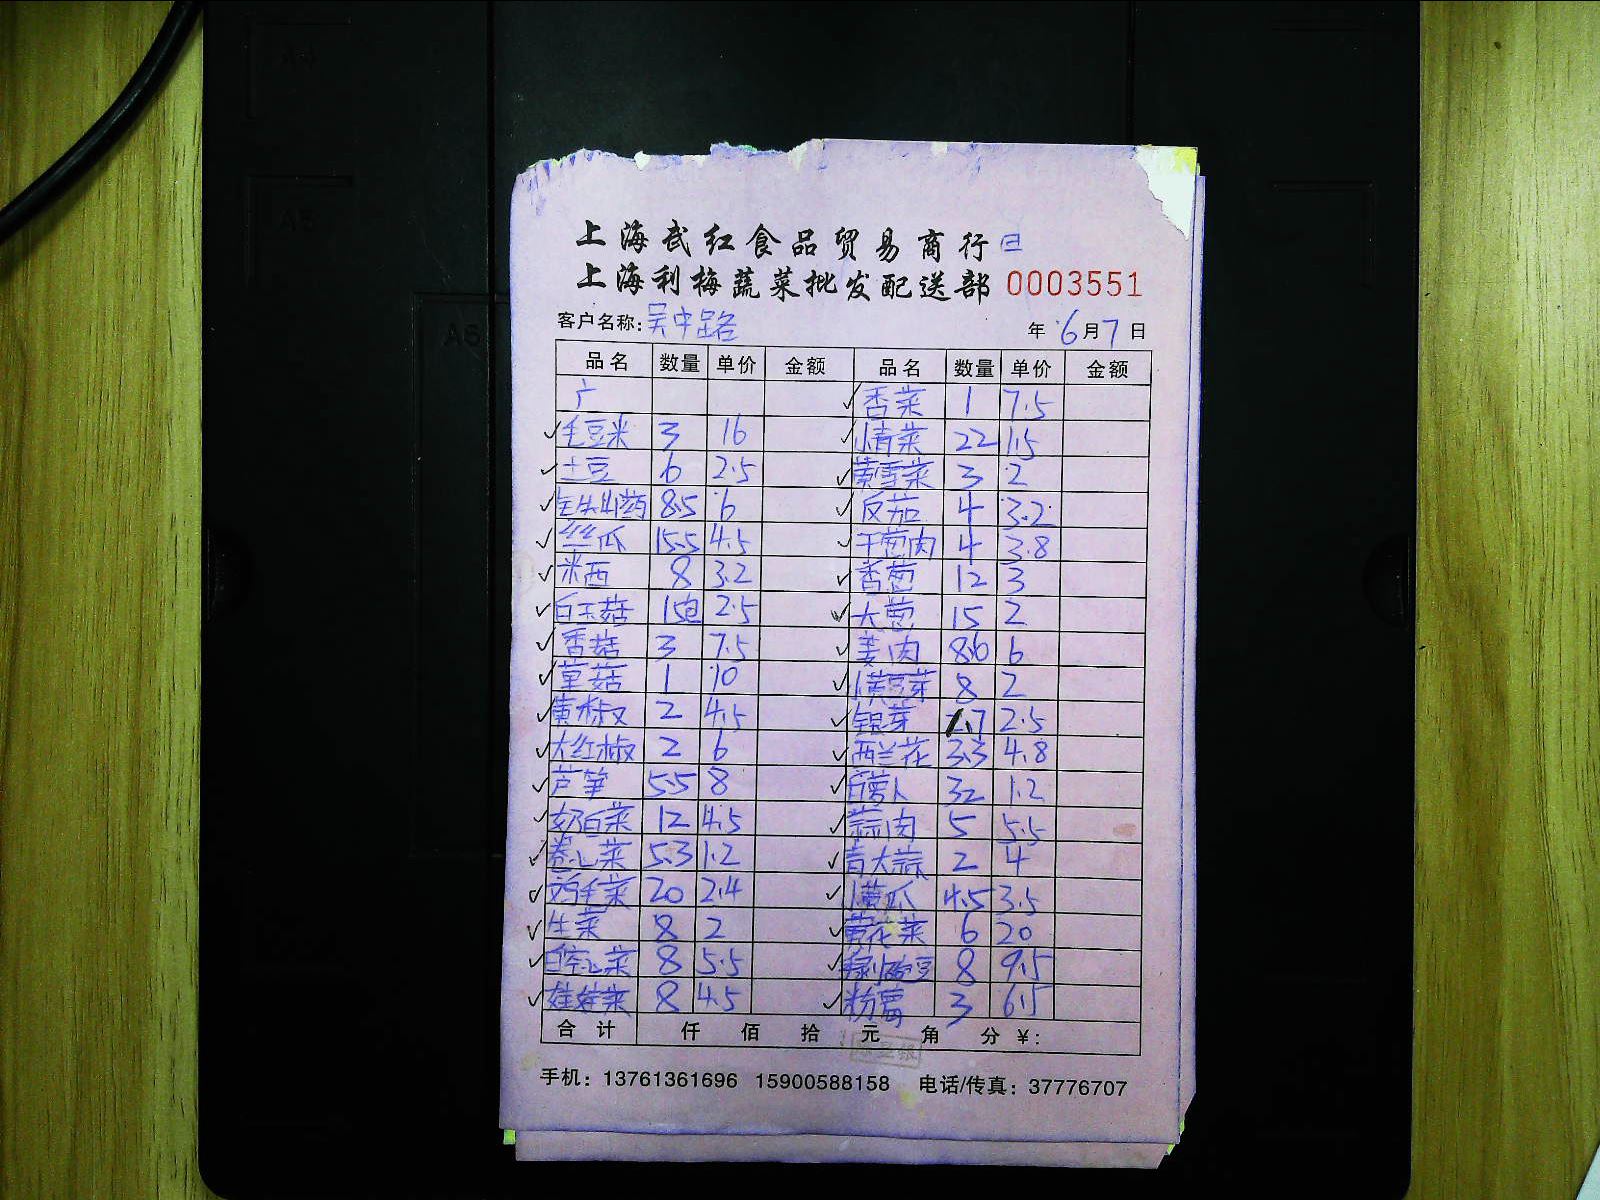 上海武红食品贸易商行
上海利梅蔬菜批发配送部 0003551
客户名称: 吴中路 年 6月7日
品名 数量 单价 金额 品名 数量 单价 金额
香菜 1 7.5
毛豆米 3 16 小青菜 22 1.5
土豆 6 2.5 黄雪菜 3 2
山药 8.5 6 反茄 4 3.2
丝瓜 15.5 4.5 干葱肉 4 3.8
米西 8 3.2 香葱 12 3
白玉菇 15包 2.5 大葱 15 2
香菇 3 7.5 姜肉 8.6 6
草菇 1 10 小黄豆芽 8 2
黄椒 2 4.5 银芽 .7 2.5
大红椒 2 6 西兰花 3.3 4.8
芦笋 5.5 8 白萝卜 32 1.2
奶白菜 12 4.5 蒜肉 5 5.5
卷心菜 5.3 1.2 青大蒜 2 4
鸡毛菜 20 2.4 小黄瓜 4.5 3.5
生菜 8 2 黄花菜 6 20
白空心菜 8 5.5 豌豆 8 9.5
娃娃菜 8 4.5 粉葛 3 6.5
合计 仟 佰 拾 元 角 分 ¥:
手机: 13761361696 15900588158 电话/传真: 37776707